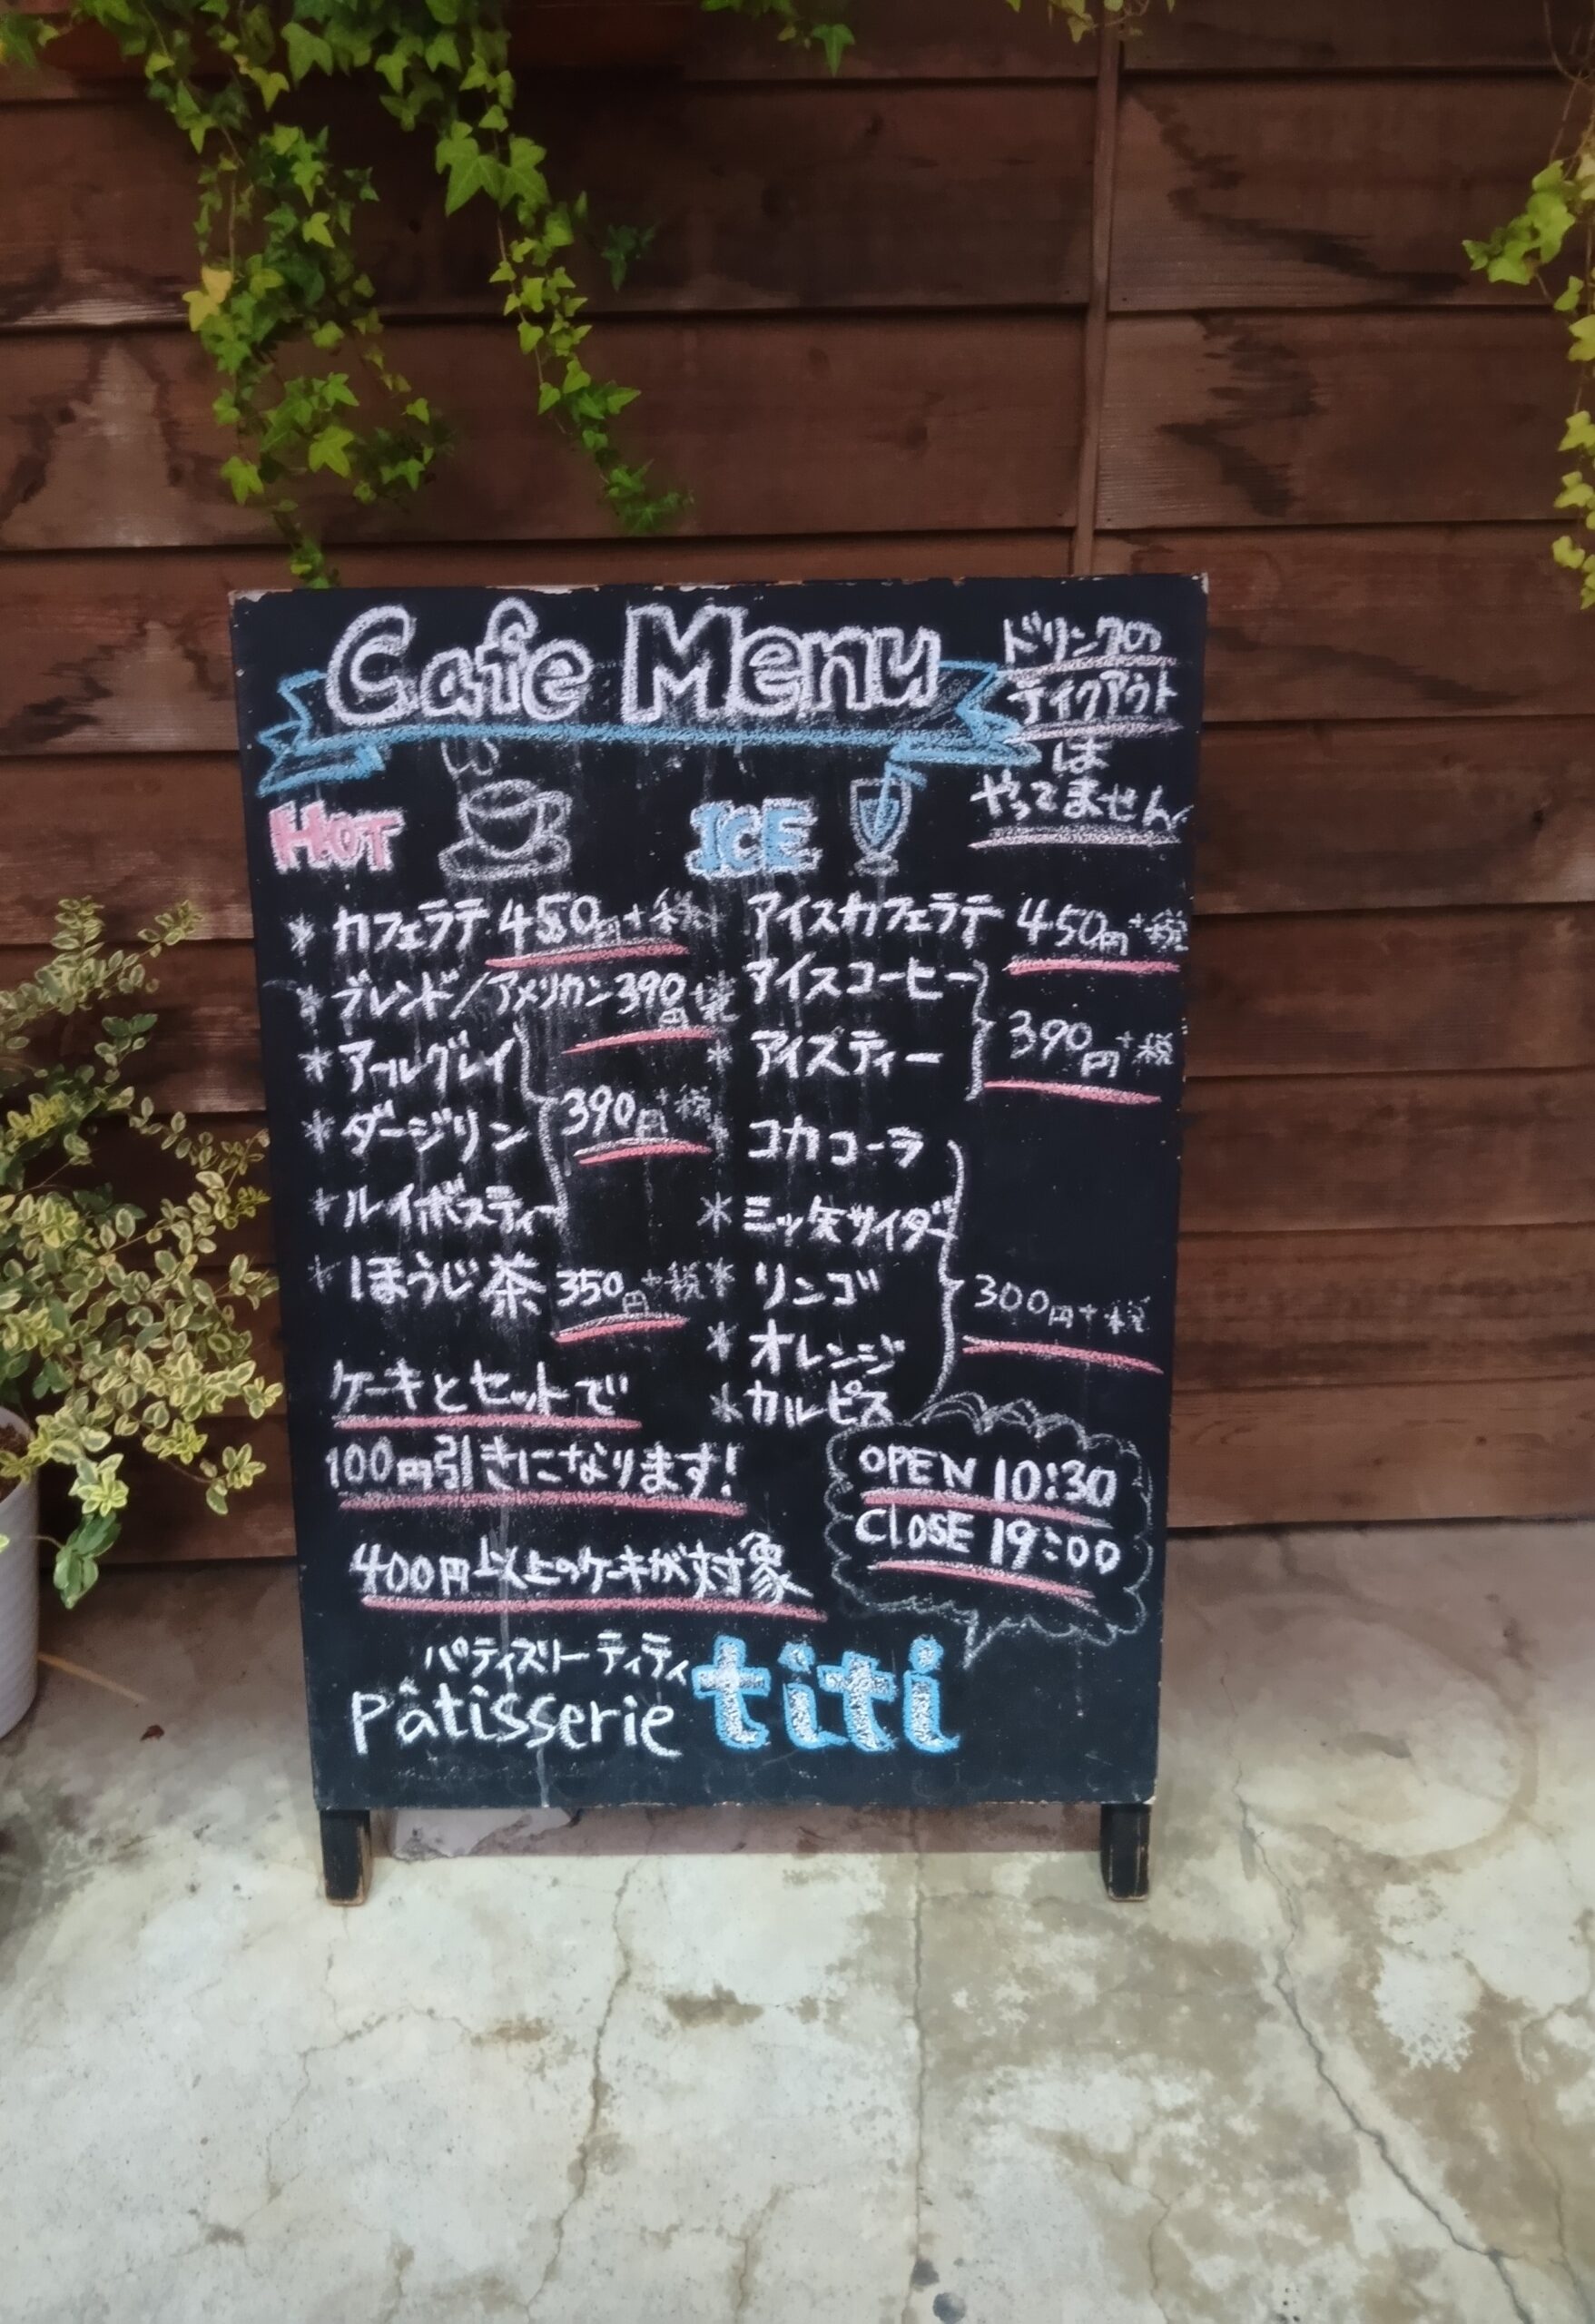 Cafe Menu
ドリンクの
テイクアウト
は
やってません
HOT
* カフェラテ 450円+税
* ブレンド/アメリカン 390円+税
* アールグレイ
* ダージリン
* ルイボスティー
390円+税
* ほうじ茶 350円+税
ケーキとセットで
100円引きになります!
400円以上のケーキが対象
ICE
* アイスカフェラテ 450円+税
* アイスコーヒー
* アイスティー
390円+税
* コカコーラ
* 三ッ矢サイダー
* リンゴ
* オレンジ
* カルピス
300円+税
OPEN 10:30
CLOSE 19:00
パティスリー ティティ
Pâtisserie titi